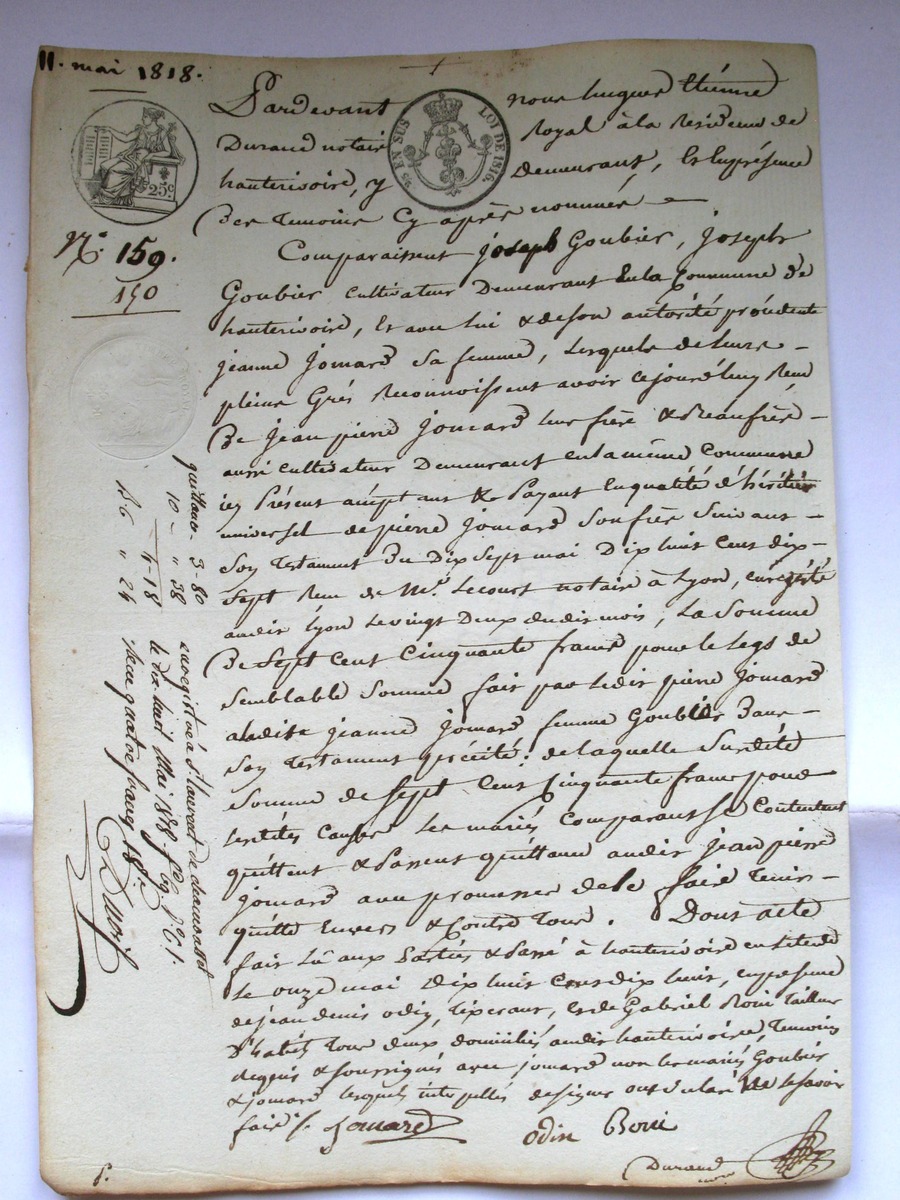 11. mai 1818.
Pardevant nous hugues Etienne
Durand notaire Royal à la Residence de
hauterivoire, y Demeurant, Et En présence
Des temoins Cy après nommés
25 EN SUS
LOI DE 1816.
25 c.
N.° 159.
150
Comparaissent joseph Goubier, Joseph
Goubier Cultivateur Demeurant En la Commune de
hauterivoire, Et avec lui & de son autorité procédente
jeanne jomard Sa femme, lesquels de leurs
pleins Grés Reconnoissent avoir cejourd'huy Reçu
De jean pierre jomard leur frère & Beaufrère
aussi Cultivateur Demeurant en la même Commune
icy Présent acceptant & Payant En qualité d'héritier
universel de pierre Jomard Son frère Suivant
Son Testament Du Dix Sept mai Dix huit Cent dix
Sept Reçu de M.e Lecourt notaire à Lyon, enrégistré
audit Lyon le vingt Deux dudit mois, La Somme
De Sept Cent Cinquante francs pour le legs de
Semblable Somme fait par ledit pierre Jomard
à ladite jeanne Jomard femme Goubier Dans
Son Testament précité: de laquelle Surdite
Somme de Sept Cent Cinquante francs pour
lesdites Causes les mariés Comparants Se Contentent
quittent & Passent quittance audit Jean pierre
jomard avec promesse de le faire Tenir
quitte Envers & Contre Tous. Dont acte
fait lu aux Parties & Passé à hauterivoire en l'etude
le onze mai Dix huit Cent dix huit, en présence
de jean denis odin, Tixerant, et de Gabriel Roni Tailleur
D'habits Tous deux domiciliés audit hauterivoire, Temoins
requis & soussignés avec jomard non les mariés Goubier
& jomard lesquels interpellés de signer ont déclaré Ne le Savoir
faire /.
Jomard
odin
Roni
Durand
quittance 3-80
10 - " 38
4-18
16 " 24
enregistré à St. laurent de chamousset
le dix huit Mai 1818 f° 69 r° C. 1.
reçu quatre francs 18 c.